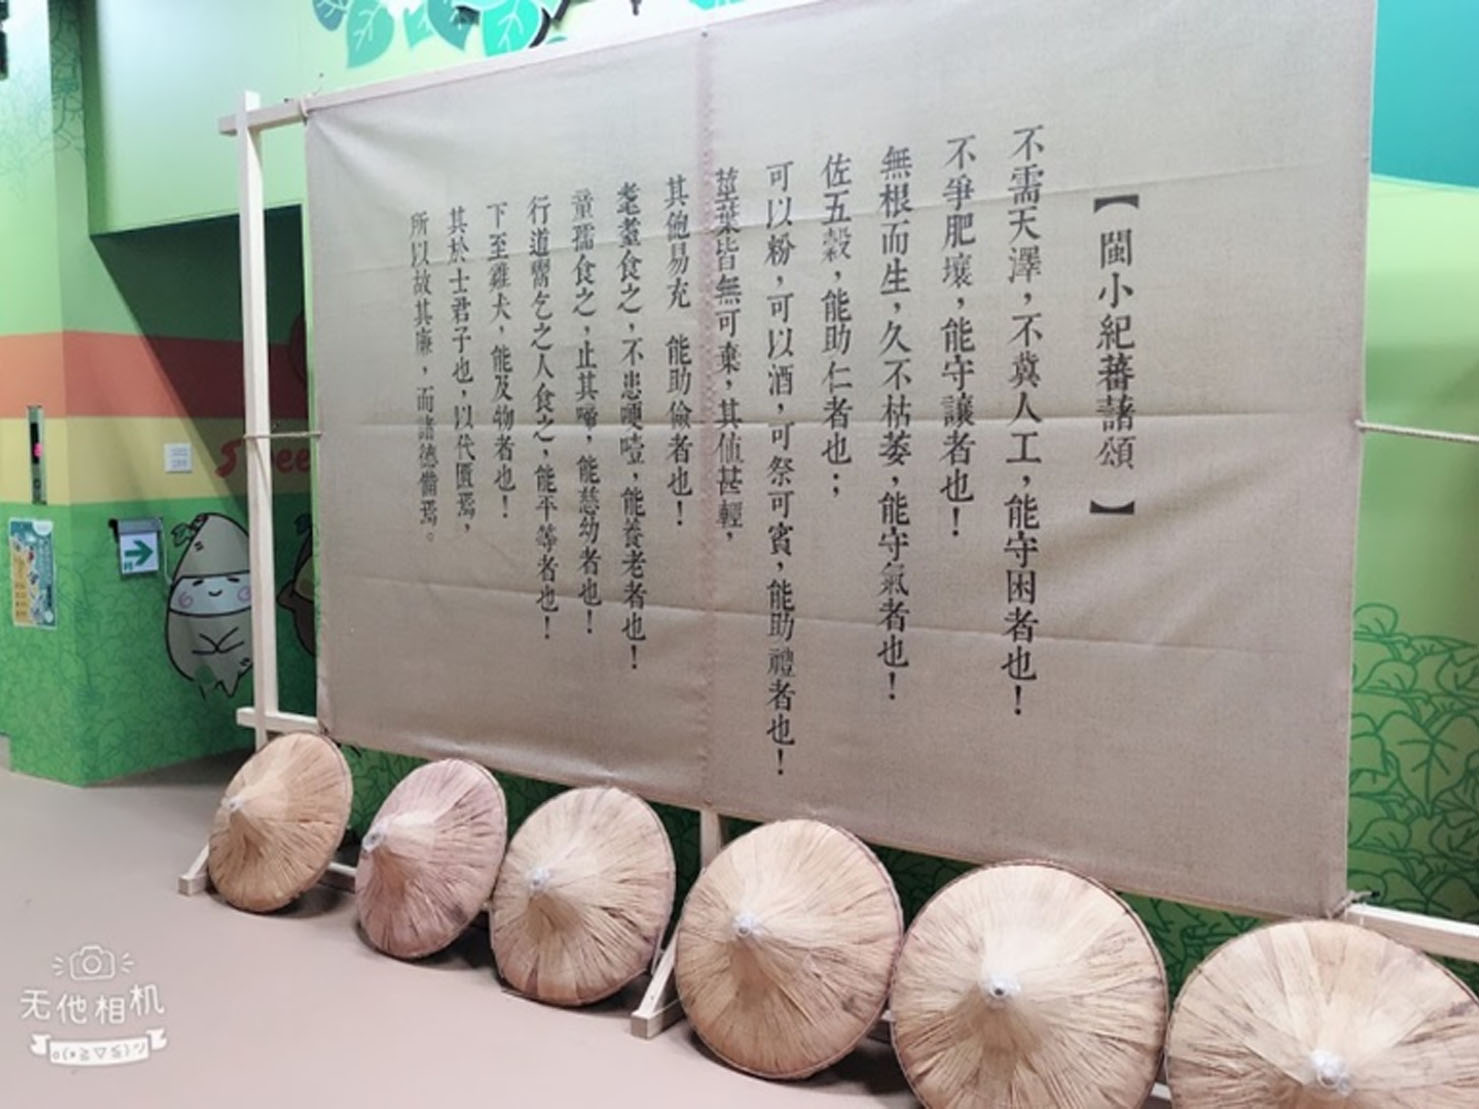 【閩小紀蕃藷頌】
不需天澤，不冀人工，能守困者也！
不爭肥壤，能守讓者也！
無根而生，久不枯萎，能守氣者也！
佐五穀，能助仁者也；
可以粉，可以酒，可祭可賓，能助禮者也！
莖葉皆無可棄，其值甚輕，
其飽易充 能助儉者也！
耄耋食之，不患哽噎，能養老者也！
童孺食之，止其啼，能慈幼者也！
行道鬻乞之人食之，能平等者也！
下至雞犬，能及物者也！
其於士君子也，以代匱焉，
所以故其廉，而諸德備焉。
无他相机